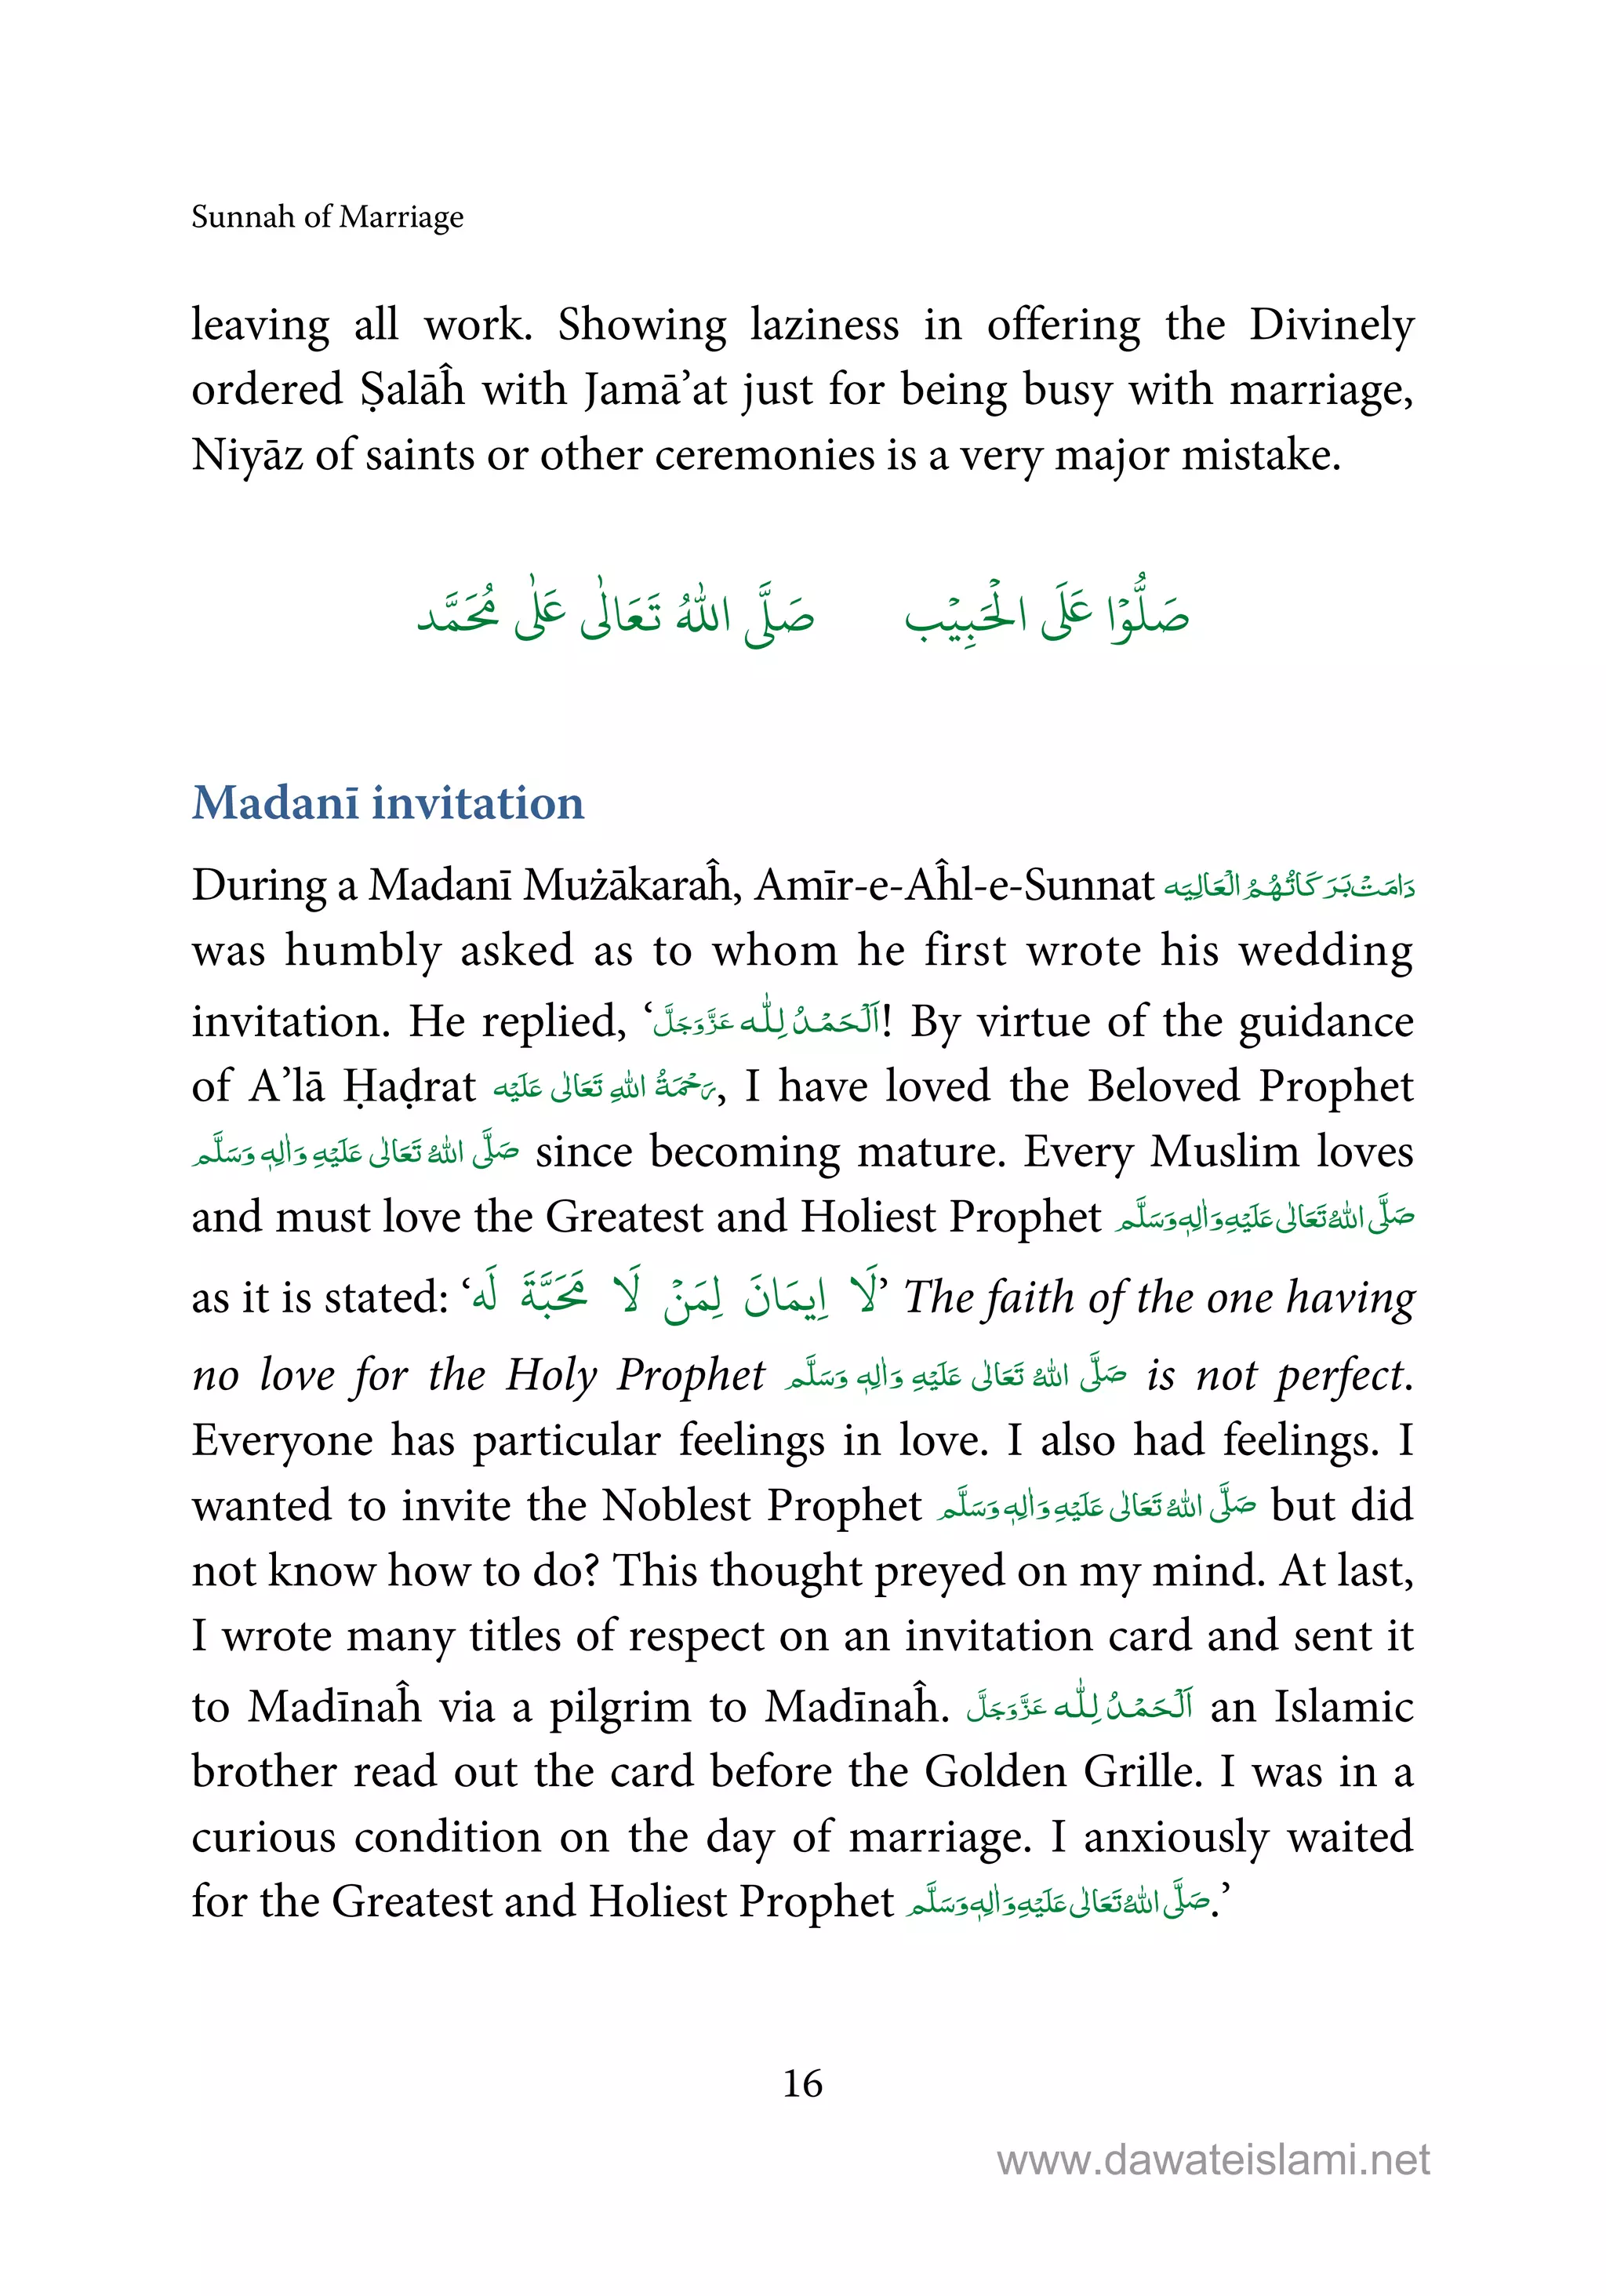 Sunnah of Marriage
leaving all work. Showing laziness in offering the Divinely
ordered Ṣalāĥ with Jamā’at just for being busy with marriage,
Niyāz of saints or other ceremonies is a very major mistake.
صَلُّوۡا عَلَى الۡحَبِيۡب صَلَّى اللهُ تَعَالٰى عَلٰى مُحَمَّد
Madanī invitation
During a Madanī Mużākaraĥ, Amīr-e-Aĥl-e-Sunnat دَامَتۡ بَرَكَاتُهُمُ الۡعَالِيَه
was humbly asked as to whom he first wrote his wedding
invitation. He replied, ‘اَلۡحَمۡدُ لِلّٰه عَزَّوَجَلَّ! By virtue of the guidance
of A’lā Ḥaḍrat رَحۡمَةُ اللهِ تَعَالٰى عَلَيۡه, I have loved the Beloved Prophet
صَلَّى اللهُ تَعَالٰى عَلَيۡهِ وَاٰلِهٖ وَسَلَّم since becoming mature. Every Muslim loves
and must love the Greatest and Holiest Prophet صَلَّى اللهُ تَعَالٰى عَلَيۡهِ وَاٰلِهٖ وَسَلَّم
as it is stated: ‘لَا اِيمَانَ لِمَنۡ لَا مَحَبَّةَ لَه’ The faith of the one having
no love for the Holy Prophet صَلَّى اللهُ تَعَالٰى عَلَيۡهِ وَاٰلِهٖ وَسَلَّم is not perfect.
Everyone has particular feelings in love. I also had feelings. I
wanted to invite the Noblest Prophet صَلَّى اللهُ تَعَالٰى عَلَيۡهِ وَاٰلِهٖ وَسَلَّم but did
not know how to do? This thought preyed on my mind. At last,
I wrote many titles of respect on an invitation card and sent it
to Madīnaĥ via a pilgrim to Madīnaĥ. اَلۡحَمۡدُ لِلّٰه عَزَّوَجَلَّ an Islamic
brother read out the card before the Golden Grille. I was in a
curious condition on the day of marriage. I anxiously waited
for the Greatest and Holiest Prophet صَلَّى اللهُ تَعَالٰى عَلَيۡهِ وَاٰلِهٖ وَسَلَّم.’
16
www.dawateislami.net